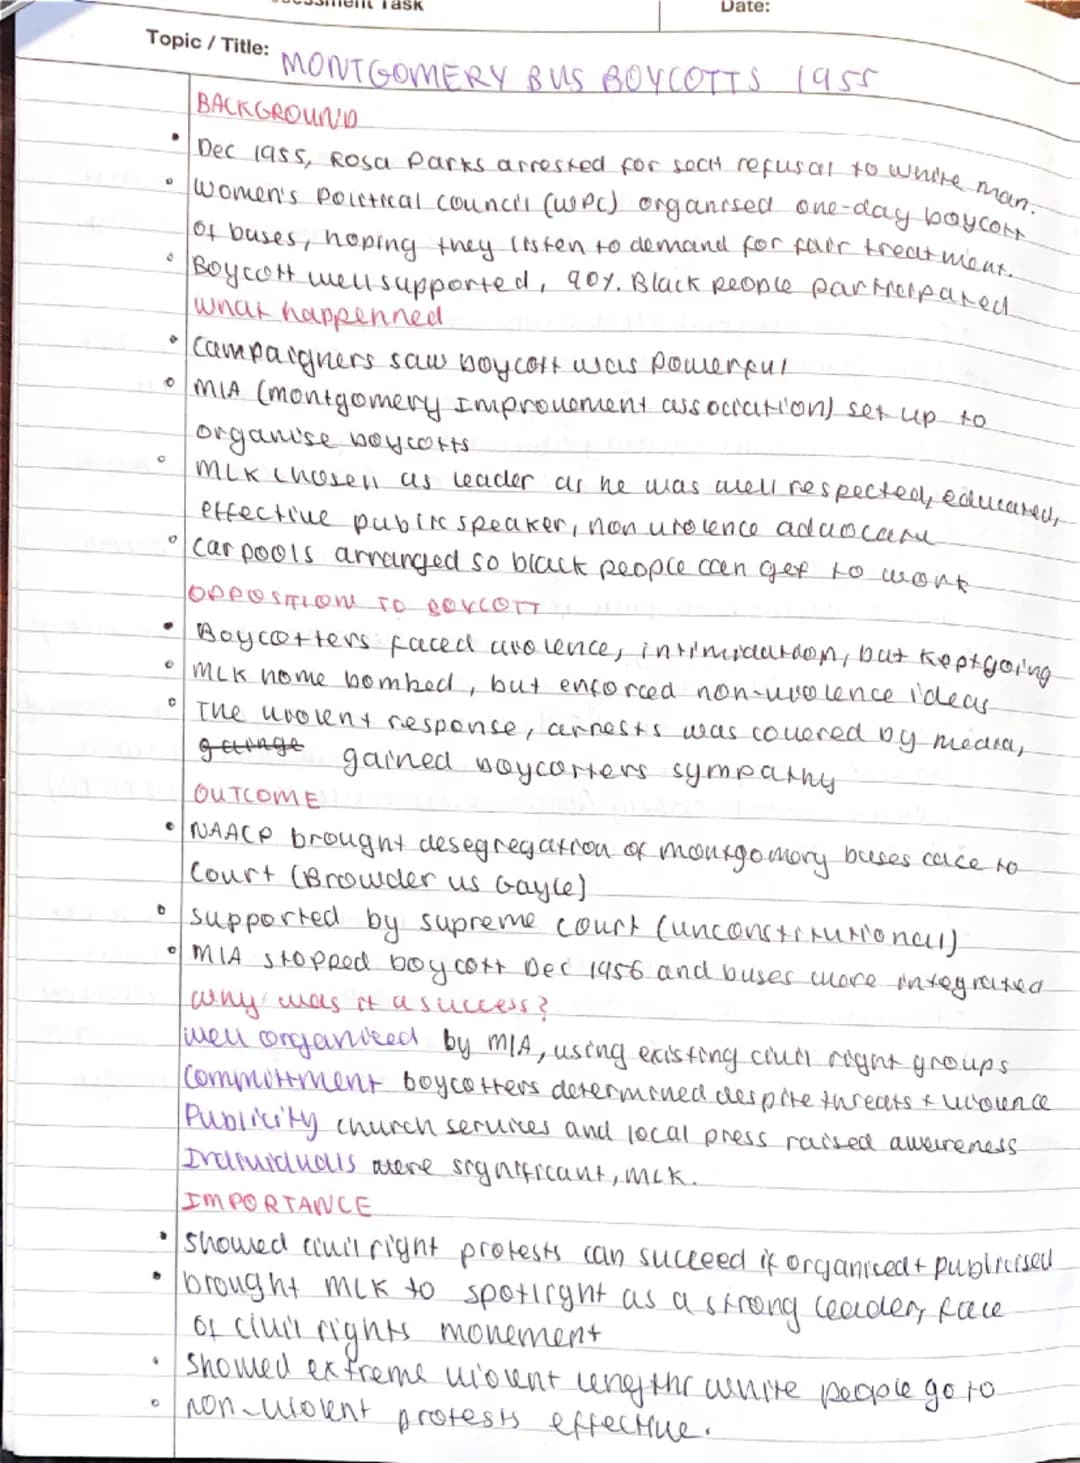 ssessment Task
Date:
Topic / Title: MONTGOMERY BUS BOYCOTTS 1955
BACKGROUND
• Dec 1955, Rosa Parks arrested for seat refusal to white man.
• Women's Political council (WPC) organised one-day boycott
of buses, hoping they listen to demand for fair treatment.
• Boycott well supported, 90% Black people participated
What happenned
• Campaigners saw boycott was powerful
• MIA (Montgomery Improvement association) set up to
organise boycotts
• MLK chosen as leader as he was well respected, educated,
effective public speaker, non violence advocate
• Car pools arranged so black people can get to work
OPPOSITION TO BOYCOTT
• Boycotters faced violence, intimidation, but kept going
• MLK home bombed, but enforced non-violence ideas
• The violent response, arrests was covered by media,
gained boycotters sympathy
OUTCOME
• NAACP brought desegregation of montgomory buses cace to
Court (Browder vs Gayle)
• supported by supreme court (unconstitutional)
• MIA stopped boycott Dec 1956 and buses were integrated
Why was it a success?
Well organised by MIA, using existing civil right groups
Committment boycotters determined despite threats + violence
Publicity church services and local press raised awareness
Individuals were significant, MLK.
IMPORTANCE
• Showed civil right protests can succeed if organised + publicised
• brought MLK to spotlight as a strong leader, face
of civil rights movement
• Showed extreme violent lengths white people go to
• non-violent protests effective.